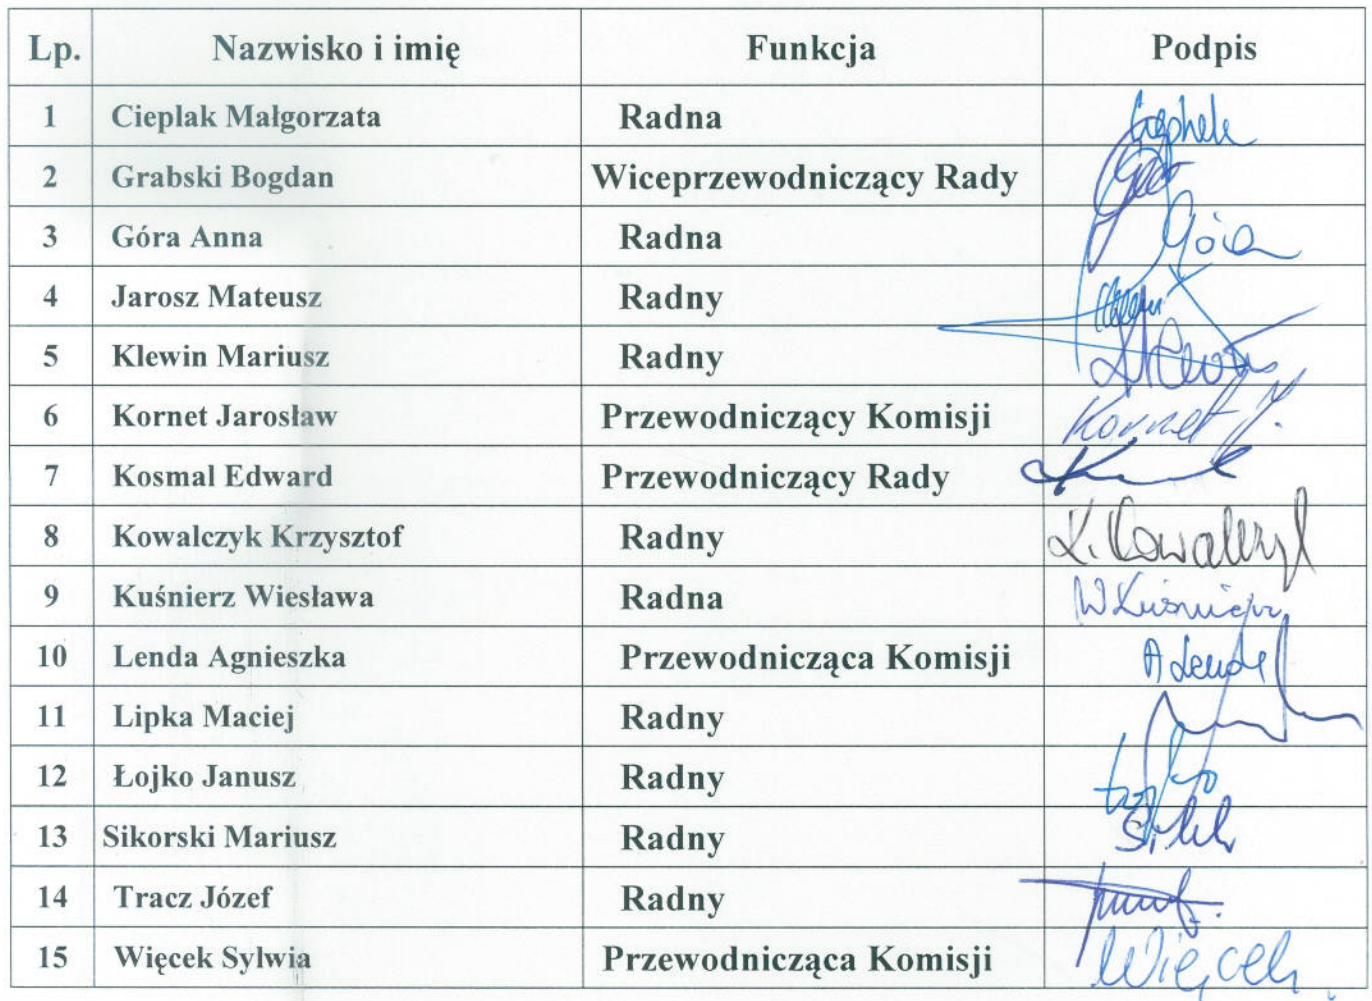 Lp. Nazwisko i imię Funkcja Podpis
1 Cieplak Małgorzata Radna
2 Grabski Bogdan Wiceprzewodniczący Rady
3 Góra Anna Radna Góra
4 Jarosz Mateusz Radny
5 Klewin Mariusz Radny
6 Kornet Jarosław Przewodniczący Komisji Kornet J.
7 Kosmal Edward Przewodniczący Rady
8 Kowalczyk Krzysztof Radny K. Kowalczyk
9 Kuśnierz Wiesława Radna W Kuśnierz
10 Lenda Agnieszka Przewodnicząca Komisji A Lenda
11 Lipka Maciej Radny
12 Łojko Janusz Radny
13 Sikorski Mariusz Radny
14 Tracz Józef Radny
15 Więcek Sylwia Przewodnicząca Komisji Więcek